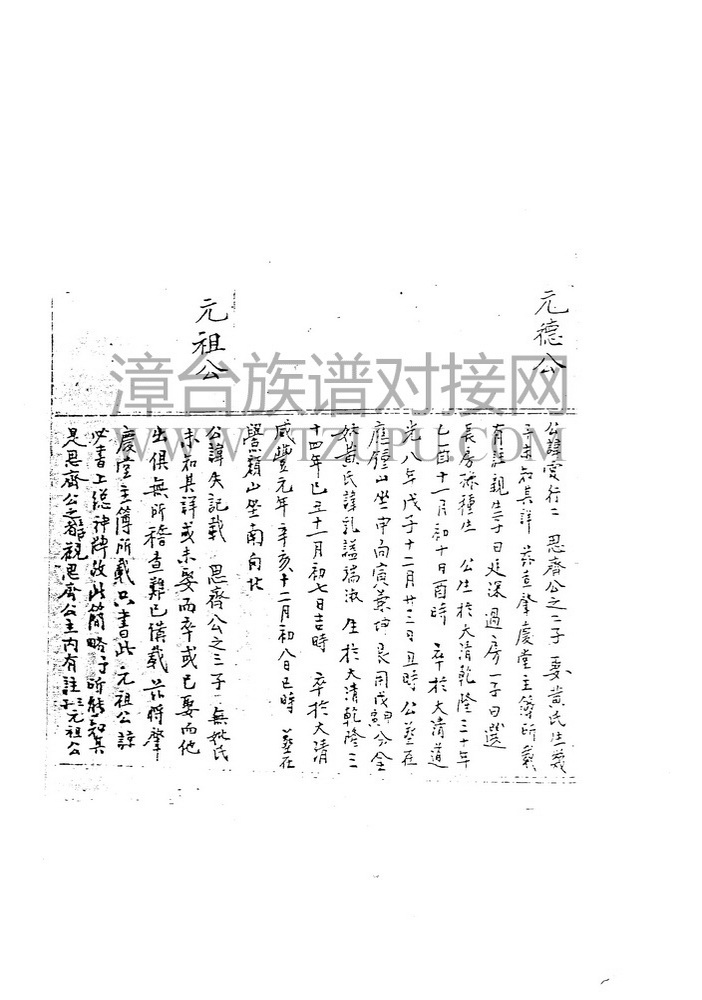 元德公
公諱實行二 思齊公之二子 娶黃氏生幾
子未知其詳 茲查肇慶堂主簿所載
有註親生子曰廷深過房一子曰選
長房孫種生 公生於大清乾隆三十年
乙酉十一月初十日酉時 卒於大清道
光八年戊子十二月廿三日丑時公葬在
山坐申向寅兼坤艮用分金
妣黃氏諱乳謚端淑 生於大清乾隆三
十四年己丑十一月初七日吉時 卒於大清
咸豐元年辛亥十二月初八日巳時 葬在
嶺山坐南向北
元祖公
公諱失記載 思齊公之三子 無妣氏
未知其詳或未娶而卒或已娶而他
出俱無所稽查難已備載 茲將肇
慶堂主簿所載只書此元祖公諒
必書上總神牌故此簡略予所能知其
是思齊公之 觀思齊公主內有註三子元祖公
漳台族谱对接网
WWW.ZTZUPU.COM